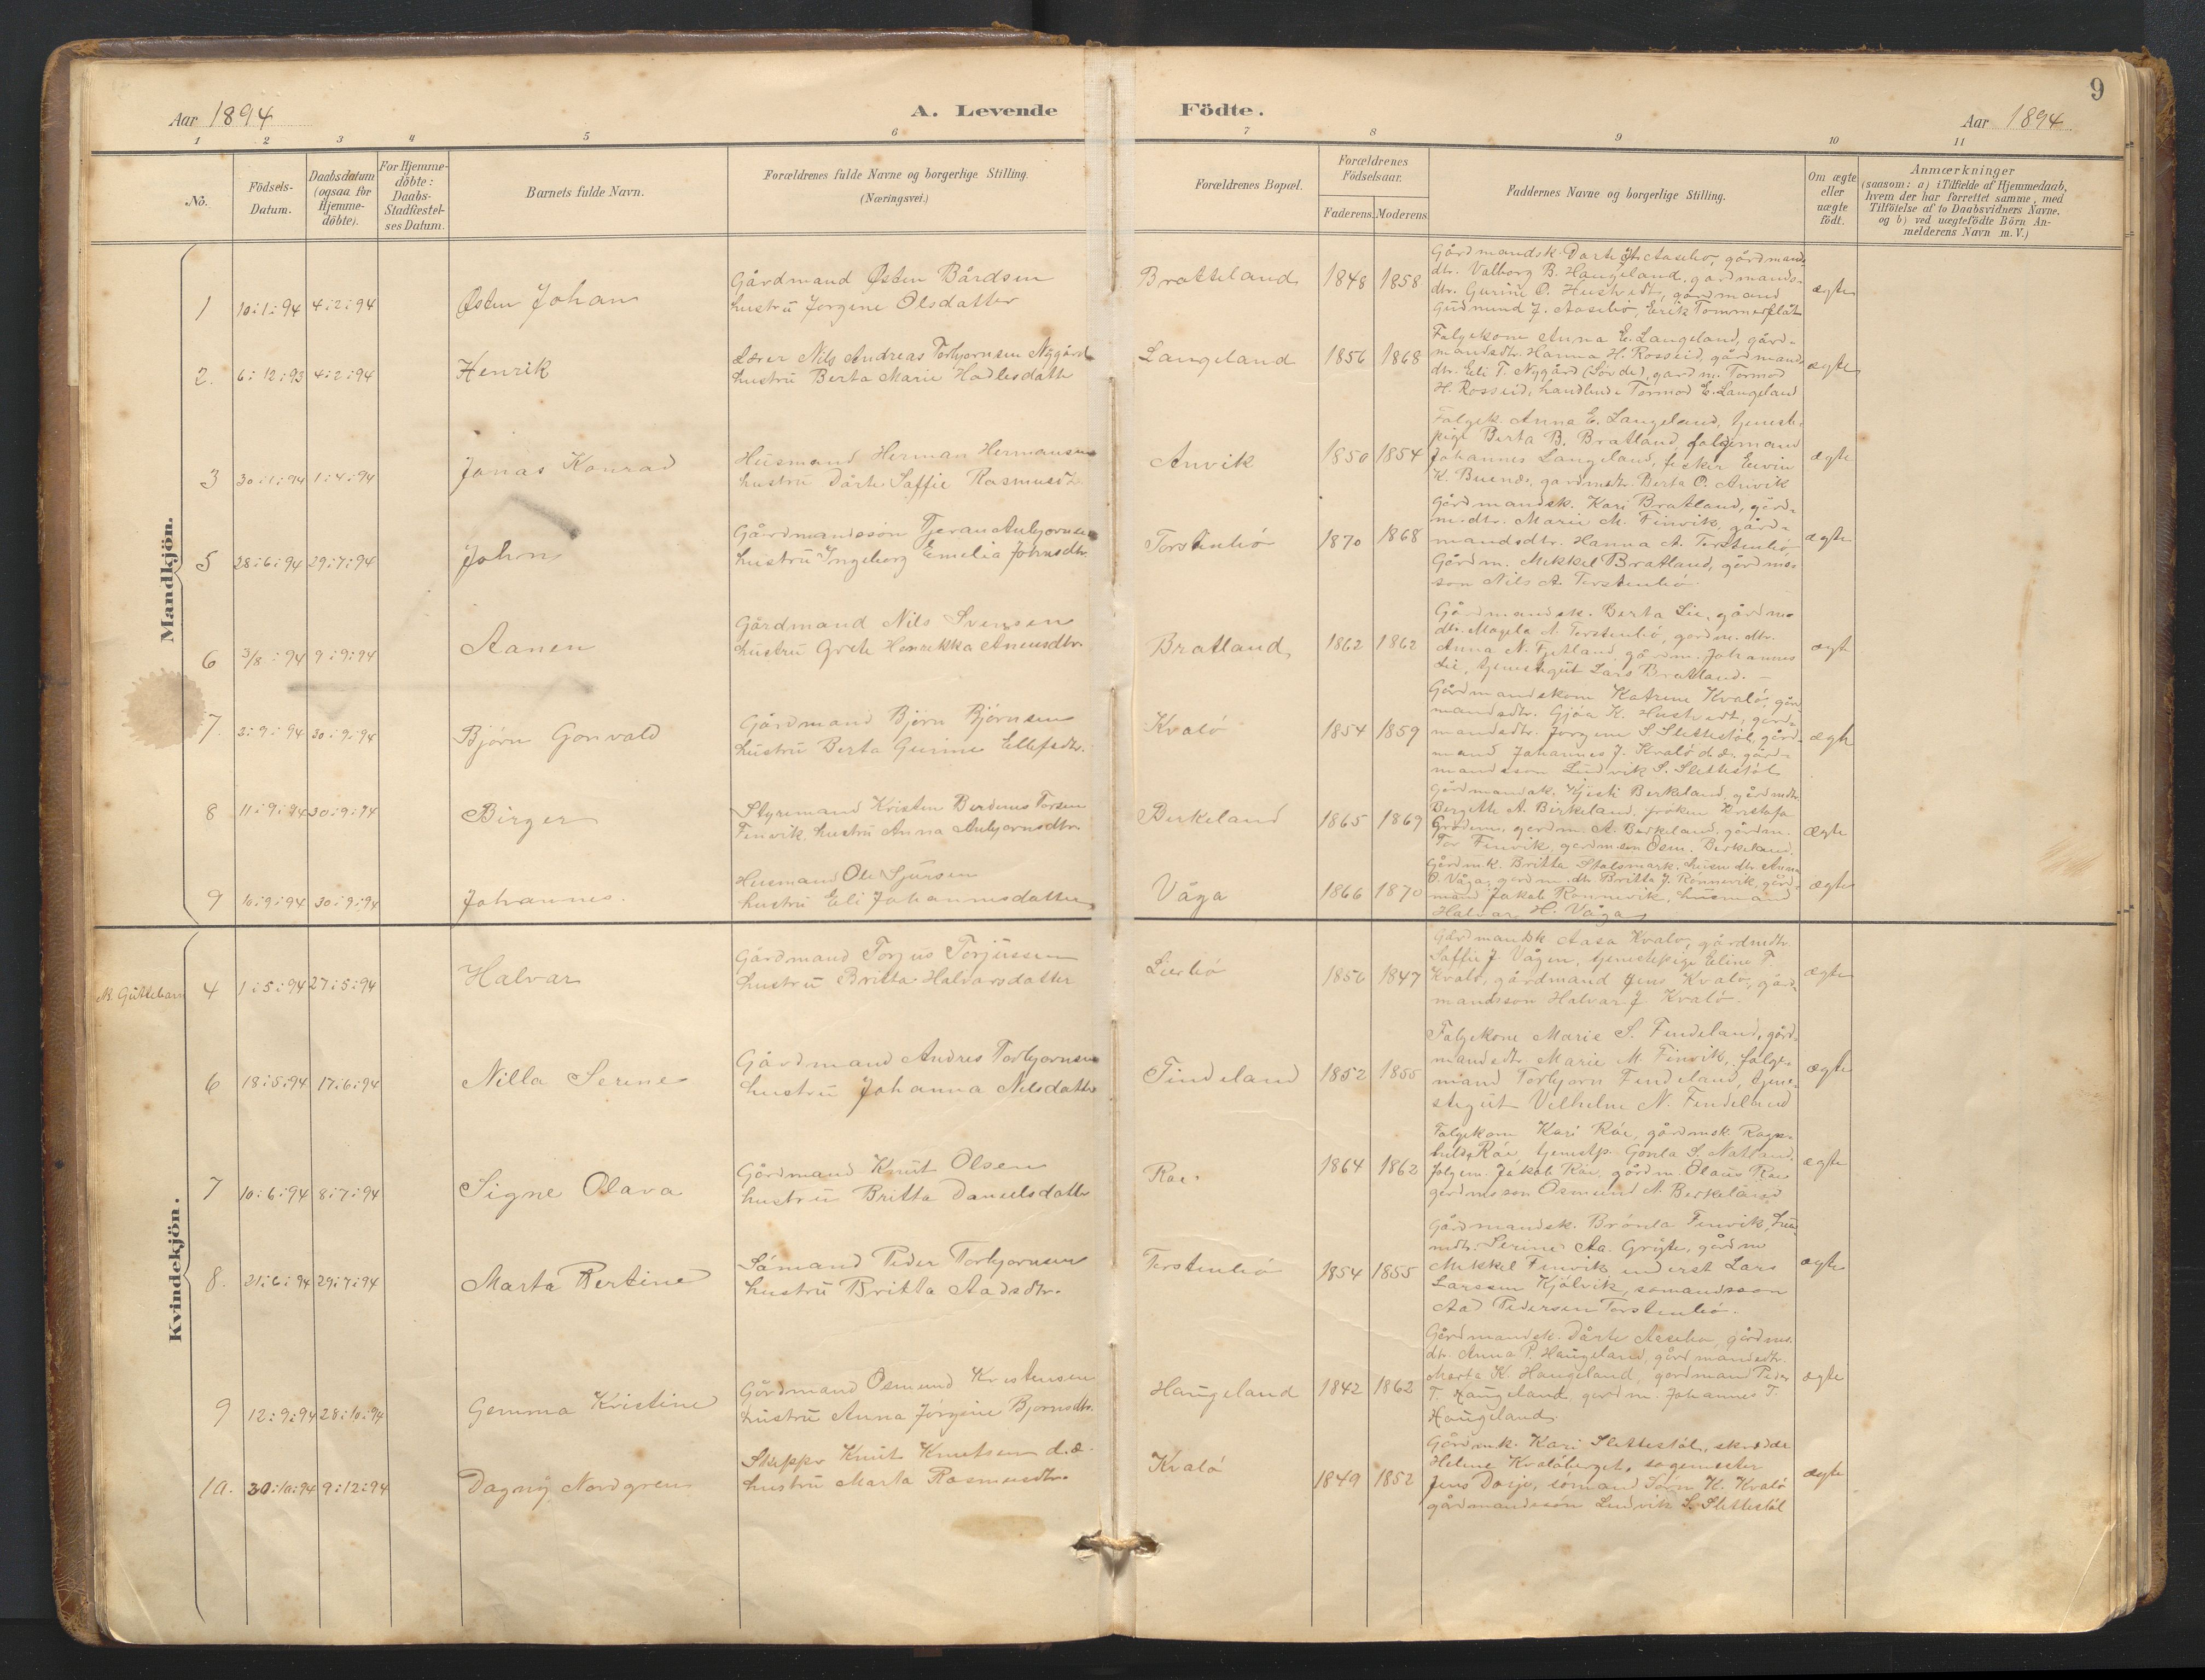 9
Aar 1894
A. Levende Födte.
Aar 1894
1 2 3 4 5 6 7 8 9 10 11
No.
Födsels-Datum.
Daabsdatum (ogsaa for Hjemme-döbte).
For Hjemme-döbte: Daabs-Stadfæstel-ses Datum.
Barnets fulde Navn.
Forældrenes fulde Navne og borgerlige Stilling.
(Næringsvei.)
Forældrenes Bopæl.
Forældrenes Födselsaar.
Faderens. Moderens.
Faddernes Navne og borgerlige Stilling.
Om ægte eller uægte födt.
Anmærkninger
(saasom: a) i Tilfælde af Hjemmedaab,
hvem der har forrettet samme, med
Tilföielse af to Daabsvidners Navne,
og b) ved uægtefödte Börn An-
melderens Navn m. V.)
Mandkjön.
1 10:1:94 4:2:94 Østen Johan
Gårdmand Østen Bårdsen
hustrú Jorgine Olsdatter
Bratteland 1848 1858
Gårdmandsk. Dorte Aaselio, gårdmands
dtr. Valborg B. Haugeland, gardmands-
dtr. Gurine O. Hustvedt, gårdmand
Gudmund J. Aaselió, Erik Tommerflåt
ægte
2. 6:12:93 4:2:94 Henrik
Lærer Nils Andreas Torbjornsen Nygård
hustrú Berta Marie Hadlesdatter
Langeland 1856 1868
Folgekone Anna E. Langeland, gård-
mandsdtr. Hanna H. Rosseid, gårdmands
dtr. Eli T. Nygård (Sövde), gardm. Tormod
H. Rosseid, handlende Tormod E. Langeland
ægte
3 30:1:94 1:4:94 Jonas Konrad
Húsmand Herman Hermansen
hustrú Dårte Saffie Rasmusd.
Anvik 1850 1854
Folgek. Anna E. Langeland, tjeneste-
pige Berta B. Bratland, folgemand
Johannes Langeland, fisker
K. Buende, gardmdtr. Berta O. Anvik
ægte
5 28:6:94 29:7:94 John
Gårdmandssön Tjeran Anbjornsen
hustrú Ingeborg Emelia Johnsdtr.
Torstenlió 1870 1868
Gårdmandsk. Kari Bratland, gård-
m.dtr. Marie M. Finvik, gård-
mandsdtr. Hanna A. Torstenlió
Gårdm. Mikkel Bratland, gårdms-
son Nils A. Torstenlió.
ægte
6 3/8:94 9:9:94 Aanen
Gårdmand Nils Svensen
hustrú Grete Henrikka Anensdtr.
Bratland 1862 1862
Gårdmandsk. Berta Lie, gårdms
dtr. Magela A. Torstenlió, gardm. dtr.
Anna N. Fjetland, gårdm. Johannes
Lie, tjenestegút Lars Bratland.
ægte
7. 2:9:94 30:9:94 Björn Gonvald
Gårdmand Björn Björnsen
hustrú Berta Gurine Ellefsdtr.
Kvaló 1854 1859
Gårdmandskone Katrine Kvaló, gård
mandsdtr. Gjóa K. Hustvedt, gard-
mandsdtr. Jorgine S. Slettestöl, gård-
mand Johannes J. Kvaló d.æ. gård-
mandsson Lúdvik S. Slettestöl
ægte
8 11:9:94 30:9:94 Birger
Styrmand Kristen Berdenus Torsen
Finvik, hustrú Anna Anbjornsdtr.
Birkeland 1865 1869
Gårdmandsk. Kjesti Berkeland, gårdmdtr.
Bergitte A. Birkeland, fröken Kristofa
Grödem, gardm. A. Berkeland, gårdm.
Tor Finvik, gardm.son Osm. Berkeland.
ægte
9 10:9:94 30:9:94 Johannes.
Husmand Ole Sjursen
hustrú Eli Johannesdatter
Våga 1866 1870
Gårdm.k. Britta Stalsmark, husm.dtr. Anna
O. Våga, gardm. dtr. Britta J. Rönnevik, gård-
mand Jakob Rönnevik, húsmand
Halvar H. Våga
ægte
Kvindekjön.
M. Gúttebarn 4 1:5:94 27:5:94 Halvar
Gårdmand Torjus Torjussen
hustrú Britta Halvarsdatter
Lierlió 1850 1847
Gårdmandsk Aasa Kvalo, gårdmdtr.
Saffie J. Vågen, tjenestepige Eline T.
Kvaló, gårdmand Jens Kvaló, gård-
mandsson Halvar J. Kvaló.
ægte
6 18:5:94 17:6:94 Nilla Serine
Gårdmand Andres Torbjornsen
hustrú Johanna Nilsdatter
Findeland 1852 1855
Folgekone Marie S. Findeland, gård-
mandsdtr. Marie M. Finvik, folge-
mand Torbjorn Findeland, tjene-
stegút Vilhelm N. Findeland
ægte
7 10:6:94 8:7:94 Signe Olava
Gårdmand Knút Olsen
hustrú Britta Danielsdatter
Rae. 1864 1862
Folgekone Kari Ráe, gårdmsk. Ragn-
hild Ráe, tjenestp. Gonla S. Natland,
folgem. Jakob Ráe, gårdm. Olaus Rae
gardms son Osmund A. Berkeland
ægte
8. 21:6:94 29:7:94 Marta Bertine
Sómand Peder Torbjornsen
hustrú Britta Aadsdtr.
Torstenlió 1854 1855
Gårdmandsk. Brónla Finvik, hus-
mdtr. Serine Aa. Gryte, gårdm
Mikkel Finvik, inderst Lars
Larssen Kjölvik, somandsson
Aad Pedersen Torstenlió.
ægte
9 12:9:94 28:10:94 Gemma Kristine
Gårdmand Osmund Kristensen
hustrú Anna Jörgine Bjornsdtr.
Haugeland 1842 1862
Gårdmandsk. Dårte Aaselio, gårdms.
dtr. Anna P. Haugeland, gårdmandsdtr.
Marta K. Haugeland, gardmand Peder
T. Haugeland, gardm. Johannes T.
Haugeland.
ægte
10. 30:10:94 9:12:94 Dagny Nordgren
Skipper Knút Knutsen d.æ.
hustrú Marta Rasmusdtr.
Kvaló 1849 1852
Gårdm.k. Kari Slettestöl, skrædde
Heline Kvalóberget, sogemester
Jens Dorje, sömand Sörn K. Kvaló
gårdmandssön Ludvik S. Slettestöl
ægte